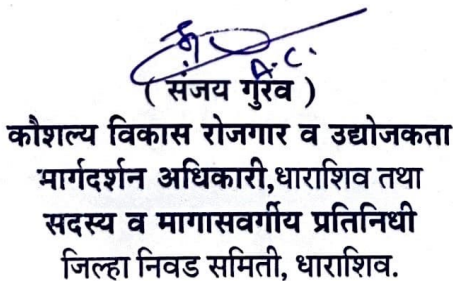 A.C.
( संजय गुरव )
कौशल्य विकास रोजगार व उद्योजकता
मार्गदर्शन अधिकारी,धाराशिव तथा
सदस्य व मागासवर्गीय प्रतिनिधी
जिल्हा निवड समिती, धाराशिव.